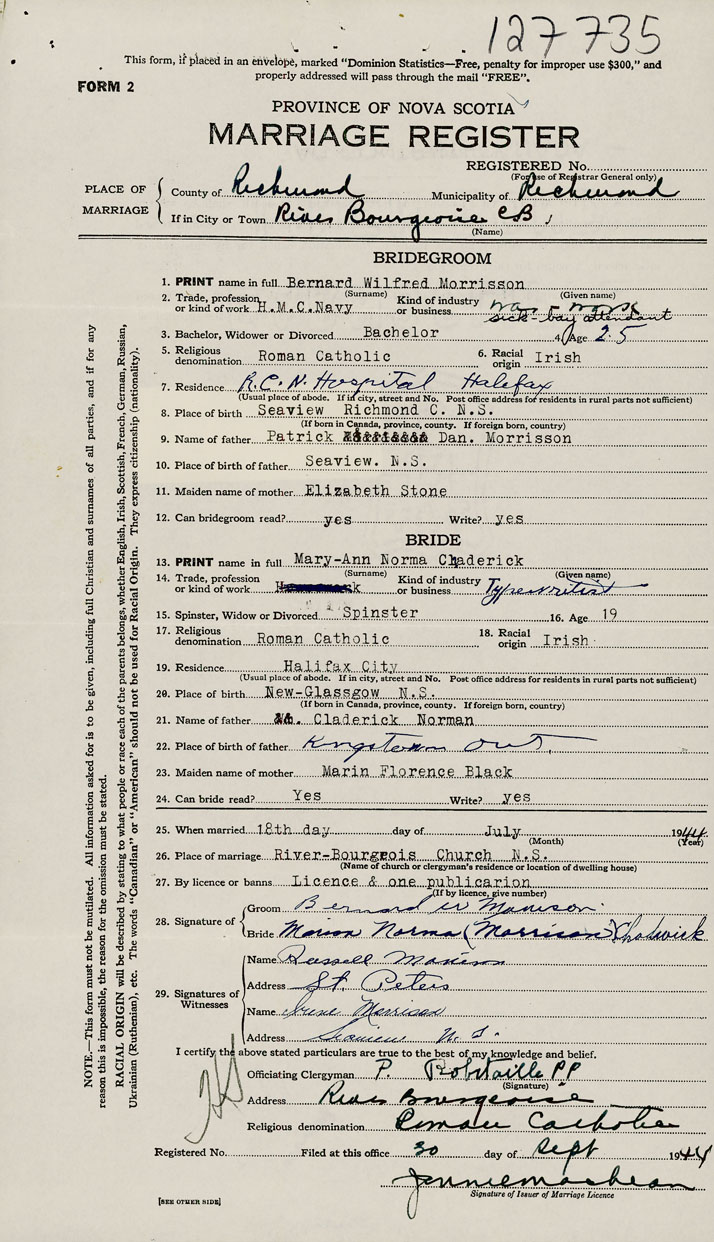 127735
This form, if placed in an envelope, marked "Dominion Statistics—Free, penalty for improper use $300," and
properly addressed will pass through the mail "FREE".
FORM 2
PROVINCE OF NOVA SCOTIA
MARRIAGE REGISTER
REGISTERED No.
(For use of Registrar General only)
PLACE OF MARRIAGE
County of Richmond Municipality of Richmond
If in City or Town River Bourgeoise C B
(Name)
BRIDEGROOM
1. PRINT name in full Bernard Wilfred Morrisson
(Surname) (Given name)
2. Trade, profession or kind of work H.M.C.Navy Kind of industry or business war work sick-bay attendant
3. Bachelor, Widower or Divorced Bachelor 4. Age 25
5. Religious denomination Roman Catholic 6. Racial origin Irish
7. Residence R.C.N. Hospital Halifax
(Usual place of abode. If in city, street and No. Post office address for residents in rural parts not sufficient)
8. Place of birth Seaview Richmond C. N.S.
(If born in Canada, province, county. If foreign born, country)
9. Name of father Patrick Dan. Morrisson
10. Place of birth of father Seaview. N.S.
11. Maiden name of mother Elizabeth Stone
12. Can bridegroom read? yes Write? yes
BRIDE
13. PRINT name in full Mary-Ann Norma Chaderick
(Surname) (Given name)
14. Trade, profession or kind of work Kind of industry or business Typewritist
15. Spinster, Widow or Divorced Spinster 16. Age 19
17. Religious denomination Roman Catholic 18. Racial origin Irish
19. Residence Halifax City
(Usual place of abode. If in city, street and No. Post office address for residents in rural parts not sufficient)
20. Place of birth New-Glassgow N.S.
(If born in Canada, province, county. If foreign born, country)
21. Name of father Claderick Norman
22. Place of birth of father Kingstown Ont.
23. Maiden name of mother Marin Florence Black
24. Can bride read? Yes Write? yes
25. When married 18th day day of July 1944
(Month) (Year)
26. Place of marriage River-Bourgeois Church N.S.
(Name of church or clergyman's residence or location of dwelling house)
27. By licence or banns Licence & one publicarion
(If by licence, give number)
28. Signature of
Groom Bernard W Morrison
Bride Marion Norma (Morrison) Chadwick
29. Signatures of Witnesses
Name Russell Morrison
Address St. Peters
Name Irene Morrison
Address Seaview N.S.
I certify the above stated particulars are true to the best of my knowledge and belief.
Officiating Clergyman P. Robitaille PP
(Signature)
Address River Bourgeoise
Religious denomination Roman Catholic
Registered No. Filed at this office 30 day of Sept 1944
Jennie
Signature of Issuer of Marriage Licence
[SEE OTHER SIDE]
NOTE.—This form must not be mutilated. All information asked for is to be given, including full Christian and surnames of all parties, and if for any
reason this is impossible, the reason for the omission must be stated.
RACIAL ORIGIN will be described by stating to what people or race each of the parents belongs, whether English, Irish, Scottish, French, German, Russian,
Ukrainian (Ruthenian), etc. The words "Canadian" or "American" should not be used for Racial Origin. They express citizenship (nationality).